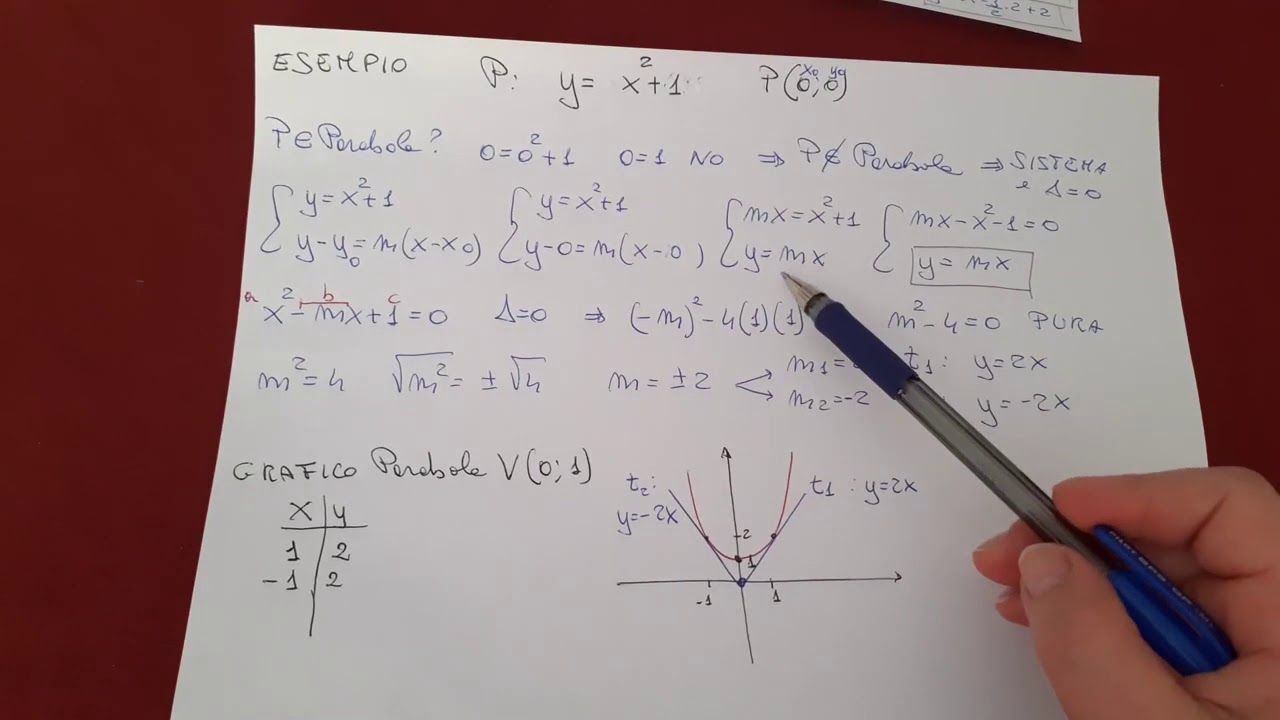 ½·2+2
ESEMPIO P: y= x²+1 P(0;0) x0 y0
P∈Parabola? 0=0²+1 0=1 NO ⇒ P∉ Parabola ⇒ SISTEMA
e Δ=0
{ y=x²+1 { y=x²+1 { mx=x²+1 { mx-x²-1=0
y-y0=m(x-x0) y-0=m(x-0) y=mx y= mx
a b c
x²-mx+1=0 Δ=0 ⇒ (-m)²-4(1)(1) m²-4=0 PURA
m²=4 √m²=±√4 m=±2 m1= t1: y=2x
m2=-2 : y=-2x
GRAFICO Parabola V(0;1)
x | y
1 | 2
-1 | 2
t2:
y=-2x
t1: y=2x
2
1
-1 1